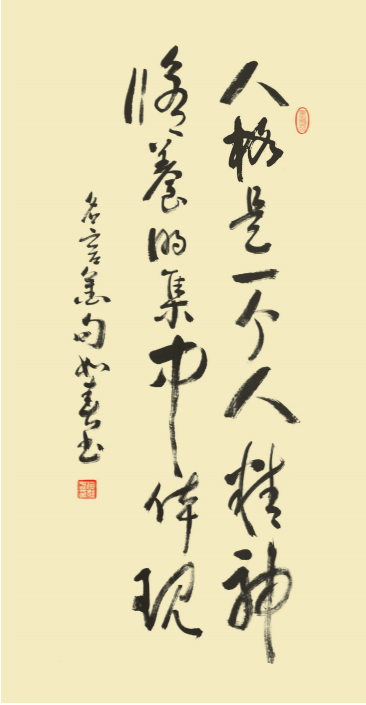 人格是一个人精神
修养的集中体现
名言善句如春书